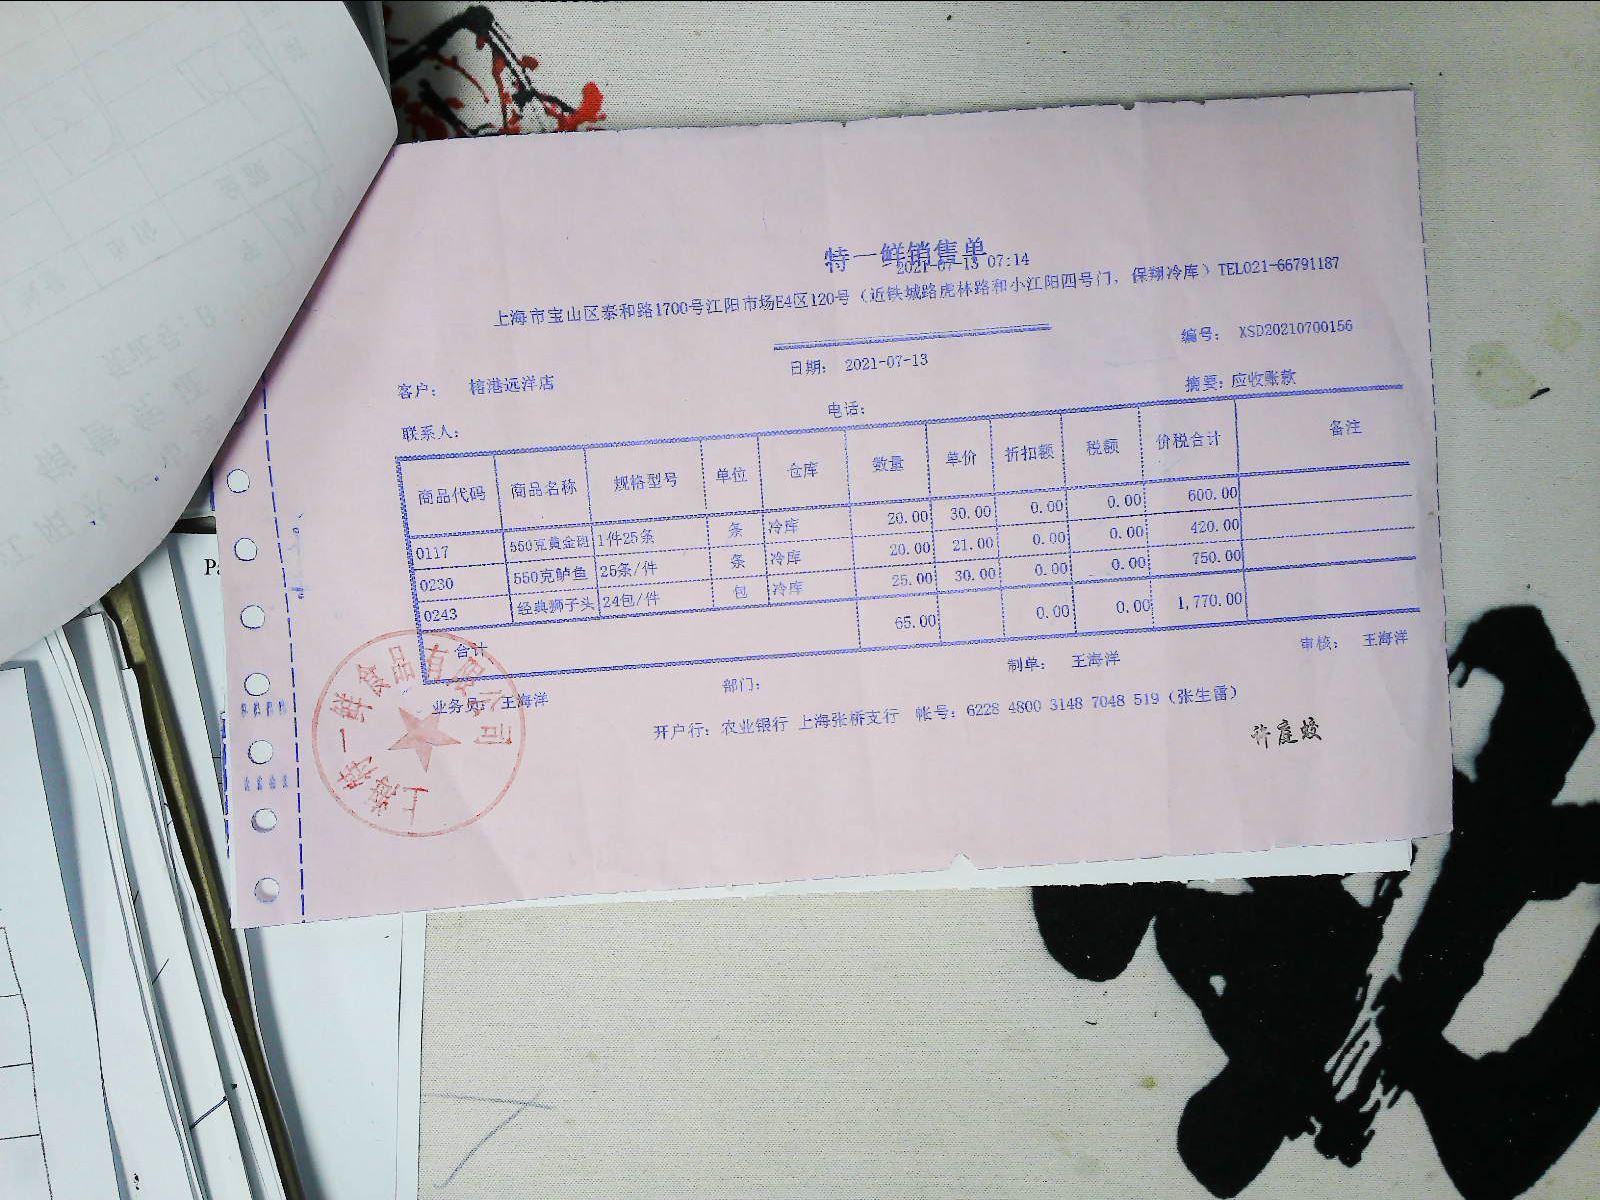 特一鲜销售单
2021-07-13 07:14
上海市宝山区泰和路1700号江阳市场E4区120号（近铁城路虎林路和小江阳四号门，保翔冷库）TEL021-66791187
编号： XSD20210700156
日期： 2021-07-13
客户： 榕港远洋店
摘要：应收账款
电话：
联系人：
商品代码 商品名称 规格型号 单位 仓库 数量 单价 折扣额 税额 价税合计 备注
0117 550克黄金斑 1件25条 条 冷库 20.00 30.00 0.00 0.00 600.00
0230 550克鲈鱼 25条/件 条 冷库 20.00 21.00 0.00 0.00 420.00
0243 经典狮子头 24包/件 包 冷库 25.00 30.00 0.00 0.00 750.00
合计 65.00 0.00 0.00 1,770.00
业务员： 王海洋 部门： 制单： 王海洋 审核： 王海洋
开户行：农业银行 上海张桥支行 帐号：6228 4800 3148 7048 519（张生雷）
许庭蛟
上海特一鲜食品有限公司
Pa